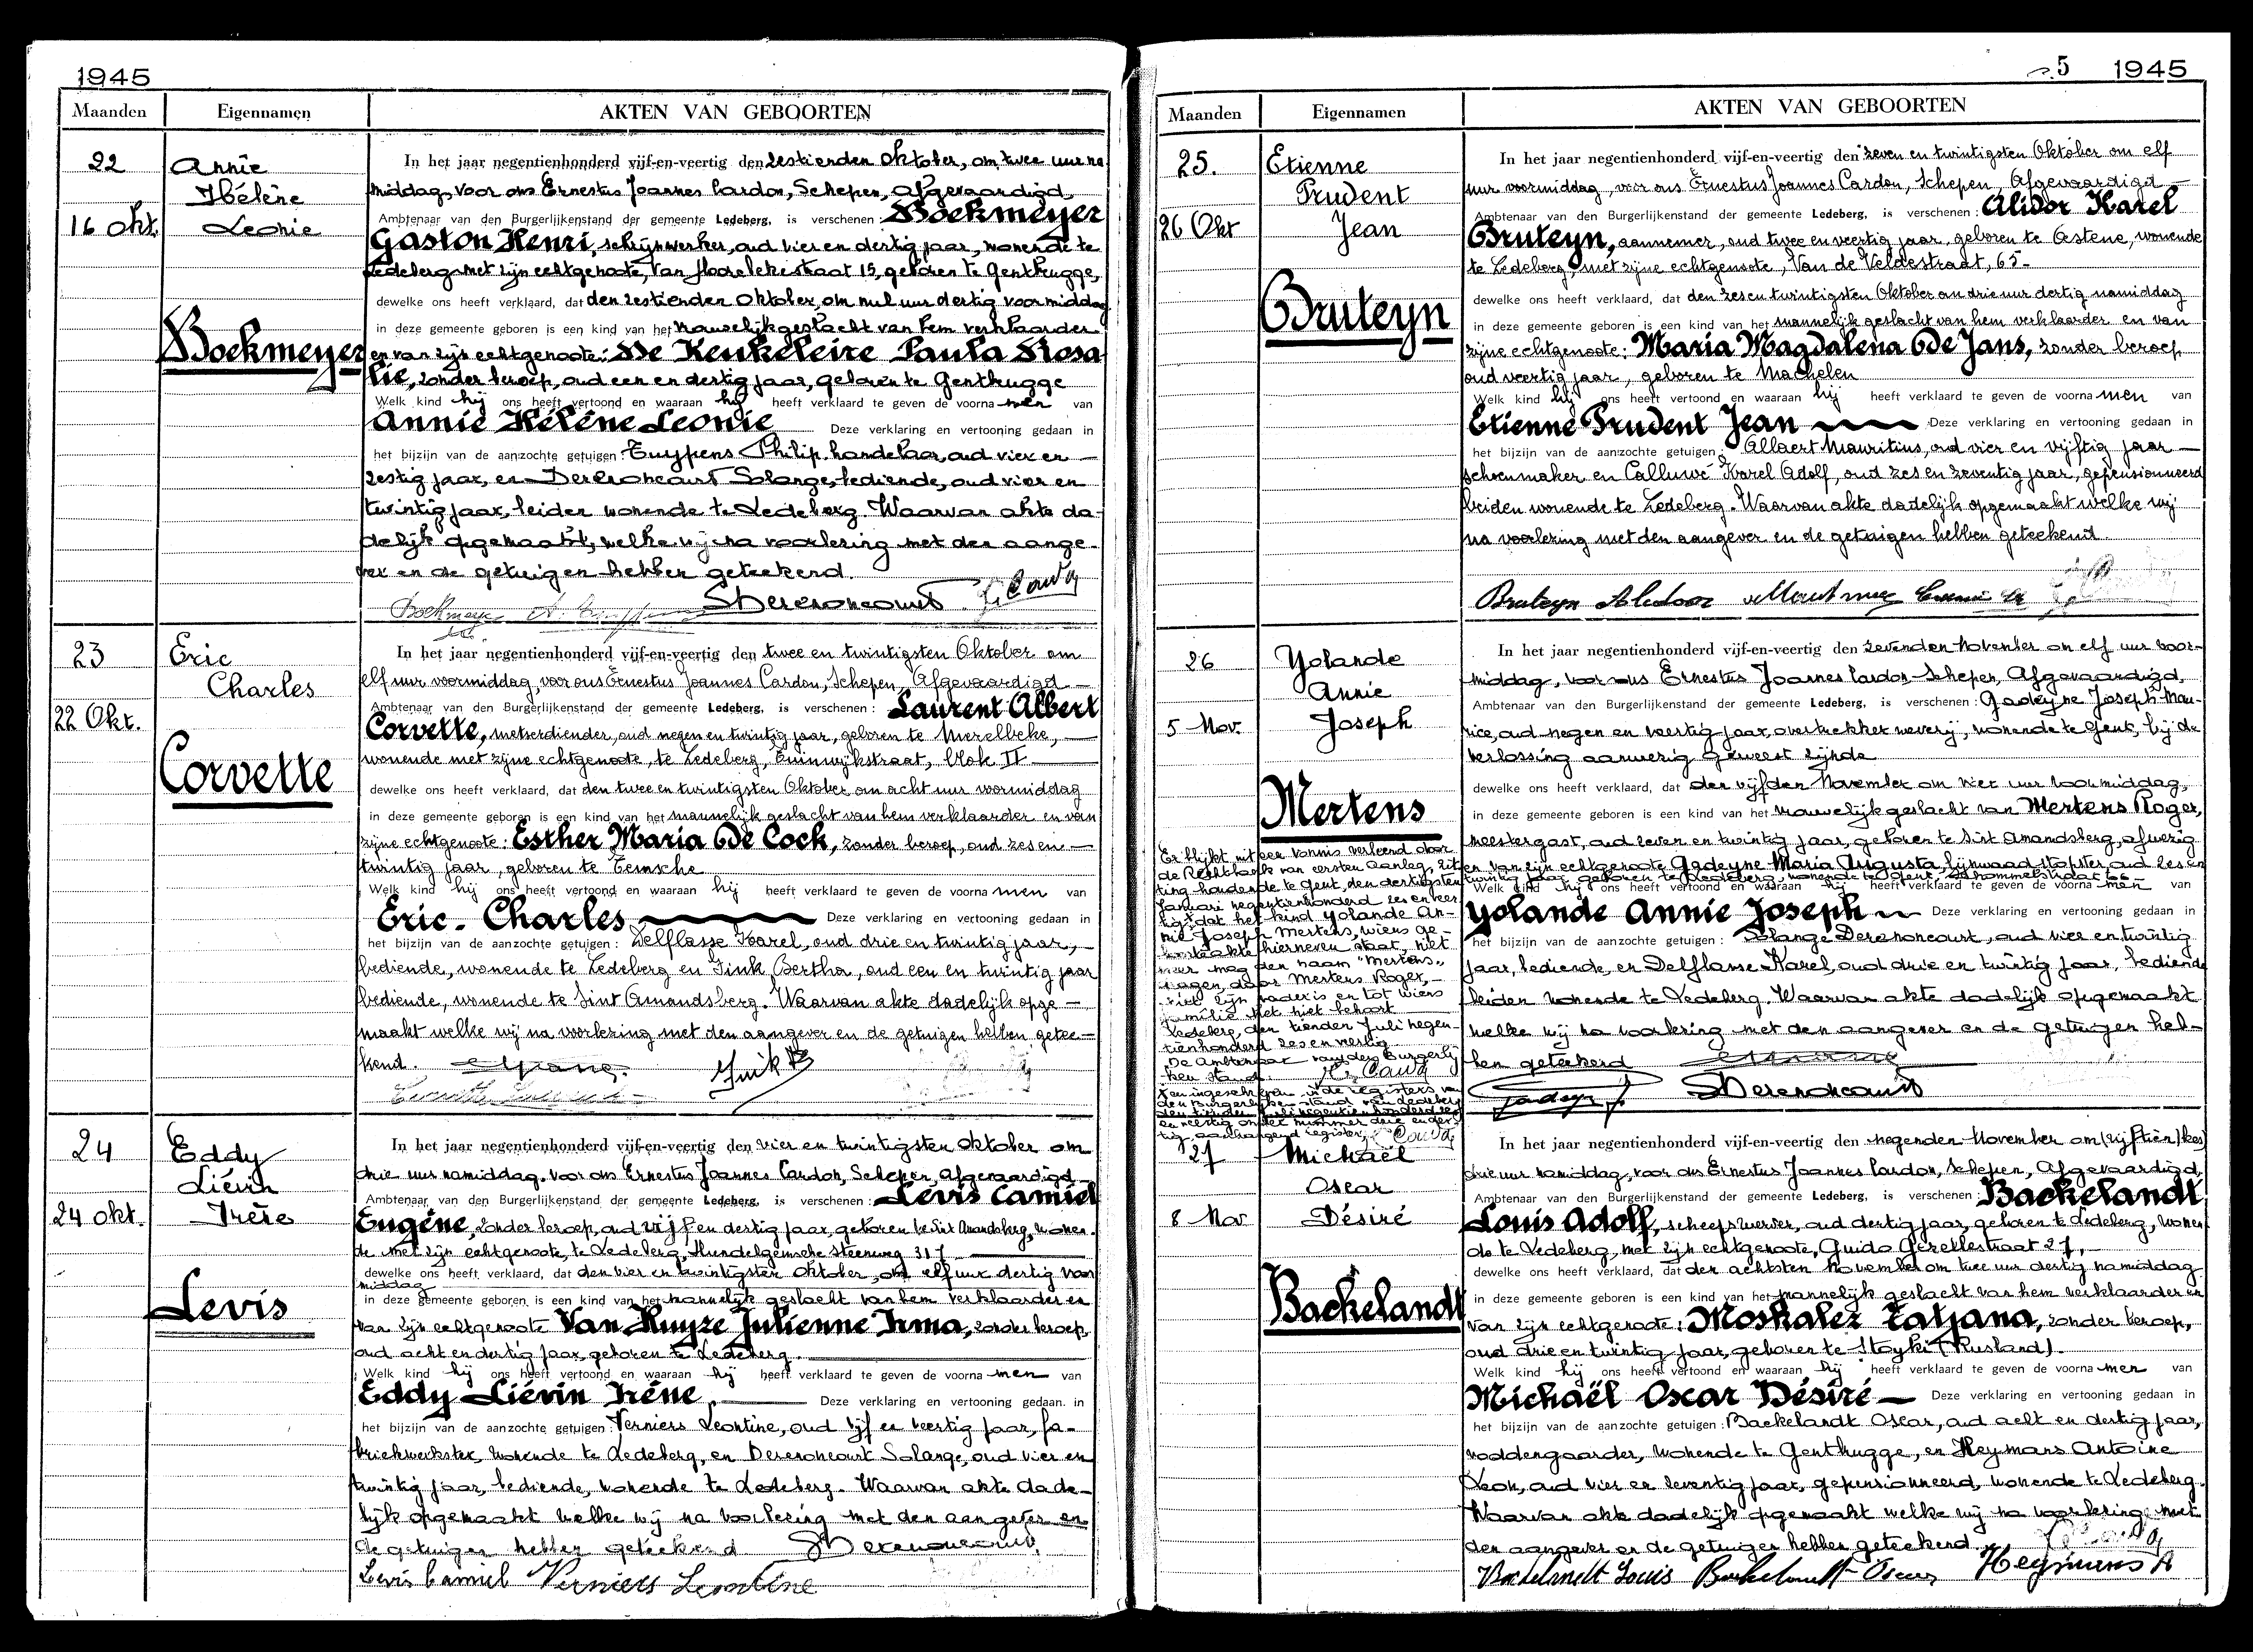 1945
Maanden Eigennamen AKTEN VAN GEBOORTEN
22
16 Okt.
Annie
Hélène
Leonie
Boekmeyer
In het jaar negentienhonderd vijf-en-veertig den zestienden Oktober, om twee uur na-
middag, voor ons Ernestus Joannes Cardon, Schepen, Afgevaardigd,
Ambtenaar van den Burgerlijkenstand der gemeente Ledeberg, is verschenen: Boekmeyer
Gaston Henri, schrijnwerker, oud vier en dertig jaar, wonende te
Ledeberg met zijn echtgenoote, Van straat 15, geboren te Gentbrugge,
dewelke ons heeft verklaard, dat den zestienden Oktober, om nul uur dertig voormiddag
in deze gemeente geboren is een kind van het vrouwelijk geslacht van hem verklaarder
en van zijn echtgenoote: De Keukeleire Paula Rosa
lie, zonder beroep, oud een en dertig jaar, geboren te Gentbrugge
Welk kind hij ons heeft vertoond en waaraan hij heeft verklaard te geven de voorna men van
Annie Hélène Leonie Deze verklaring en vertooning gedaan in
het bijzijn van de aanzochte getuigen: Cuypens Philip, handelaar, oud vier en
zestig jaar, en Derenoncourt Solange, bediende, oud vier en
twintig jaar, beiden wonende te Ledeberg. Waarvan akte da-
delijk opgemaakt, welke wij na voorlezing met den aange-
ver en de getuigen hebben geteekend.
Derenoncourt
23
22 Okt.
Eric
Charles
Corvette
In het jaar negentienhonderd vijf-en-veertig den twee en twintigsten Oktober om
elf uur voormiddag, voor ons Ernestus Joannes Cardon, Schepen, Afgevaardigd
Ambtenaar van den Burgerlijkenstand der gemeente Ledeberg, is verschenen: Laurent Albert
Corvette, metserdiender, oud negen en twintig jaar, geboren te Merelbeke,
wonende met zijne echtgenoote, te Ledeberg, Tuinwijkstraat, blok II
dewelke ons heeft verklaard, dat den twee en twintigsten Oktober om acht uur voormiddag
in deze gemeente geboren is een kind van het mannelijk geslacht van hem verklaarder en van
zijne echtgenoote: Esther Maria De Cock, zonder beroep, oud zes en
twintig jaar, geboren te Temsche
Welk kind hij ons heeft vertoond en waaraan hij heeft verklaard te geven de voorna men van
Eric - Charles Deze verklaring en vertooning gedaan in
het bijzijn van de aanzochte getuigen: Delflasse Karel, oud drie en twintig jaar,
bediende, wonende te Ledeberg en Fink Bertha, oud een en twintig jaar
bediende, wonende te Sint Amandsberg. Waarvan akte dadelijk opge-
maakt welke wij na voorlezing met den aangever en de getuigen hebben getee-
kend.
Fink B
24
24 okt.
Eddy
Liévin
Irène
Levis
In het jaar negentienhonderd vijf-en-veertig den vier en twintigsten Oktober om
drie uur namiddag. voor ons Ernestus Joannes Cardon, Schepen, Afgevaardigd
Ambtenaar van den Burgerlijkenstand der gemeente Ledeberg, is verschenen: Levis Camiel
Eugène, zonder beroep, oud vijf en dertig jaar, geboren te Sint Amandsberg, wonen-
de met zijn echtgenoote, te Ledeberg, Hundelgemsche steenweg 317
dewelke ons heeft verklaard, dat den vier en twintigsten Oktober, om elf uur dertig voor
middag
in deze gemeente geboren is een kind van het mannelijk geslacht van hem verklaarder en
van zijn echtgenoote Van Huyse Julienne Irma, zonder beroep,
oud acht en dertig jaar, geboren te Ledeberg.
Welk kind hij ons heeft vertoond en waaraan hij heeft verklaard te geven de voorna men van
Eddy Liévin Irène. Deze verklaring en vertooning gedaan in
het bijzijn van de aanzochte getuigen: Verniers Leontine, oud vijf en veertig jaar, fa-
briekwerkster, wonende te Ledeberg, en Derenoncourt Solange, oud vier en
twintig jaar, bediende, wonende te Ledeberg. Waarvan akte dade-
lijk opgemaakt welke wij na voorlezing met den aangever en
de getuigen hebben geteekend Derenoncourt
Levis Camiel Verniers Leontine
5 1945
Maanden Eigennamen AKTEN VAN GEBOORTEN
25.
26 Okt
Etienne
Prudent
Jean
Bruteyn
In het jaar negentienhonderd vijf-en-veertig den zeven en twintigsten Oktober om elf
uur voormiddag, voor ons Ernestus Joannes Cardon, Schepen, Afgevaardigd
Ambtenaar van den Burgerlijkenstand der gemeente Ledeberg, is verschenen: Alidor Karel
Bruteyn, aannemer, oud twee en veertig jaar, geboren te Astene, wonende
te Ledeberg, met zijne echtgenoote, Van de Veldestraat, 65-
dewelke ons heeft verklaard, dat den zes en twintigsten Oktober om drie uur dertig namiddag
in deze gemeente geboren is een kind van het mannelijk geslacht van hem verklaarder en van
zijne echtgenoote: Maria Magdalena De Jans, zonder beroep
oud veertig jaar, geboren te Machelen
Welk kind hij ons heeft vertoond en waaraan hij heeft verklaard te geven de voorna men van
Etienne Prudent Jean Deze verklaring en vertooning gedaan in
het bijzijn van de aanzochte getuigen: Allaert Mauritius, oud vier en vijftig jaar
schoenmaker en Calluwé Karel Adolf, oud zes en zeventig jaar, gepensionneerd
beiden wonende te Ledeberg. Waarvan akte dadelijk opgemaakt welke wij
na voorlezing met den aangever en de getuigen hebben geteekend.
Bruteyn Alidoor
26
5 Nov.
Yolande
Annie
Joseph
Mertens
Er blijkt uit een vonnis verleend door
de Rechtbank van eersten aanleg, zit-
ting houdende te Gent, den dertigsten
Januari negentienhonderd zes en veer-
tig, dat het kind Yolande An-
nie Joseph Mertens, wiens ge-
boorteakte hierneven staat, niet
meer mag den naam "Mertens"
dragen, daar Mertens Roger,
niet zijn vader is en tot wiens
familie het niet behoort
Ledeberg, den tienden Juli negen-
tienhonderd zes en veertig
De Ambtenaar van den Burgerlij-
ken stand
In het jaar negentienhonderd vijf-en-veertig den zevenden November om elf uur voor-
middag, voor ons Ernestus Joannes Cardon, Schepen, Afgevaardigd,
Ambtenaar van den Burgerlijkenstand der gemeente Ledeberg, is verschenen: Gadeyne Joseph Mau-
rice, oud negen en veertig jaar, overtrekker weverij, wonende te Gent, bij de
verlossing aanwezig geweest zijnde
dewelke ons heeft verklaard, dat den vijfden November om vier uur voormiddag,
in deze gemeente geboren is een kind van het vrouwelijk geslacht van Mertens Roger,
meestergast, oud zeven en twintig jaar, geboren te Sint Amandsberg, afwezig
en van zijn echtgenoote Gadeyne Maria Augusta, lijnwaadstopster, oud zes en
twintig jaar, geboren te Ledeberg, wonende te Gent,
Welk kind hij ons heeft vertoond en waaraan hij heeft verklaard te geven de voorna men van
Yolande Annie Joseph Deze verklaring en vertooning gedaan in
het bijzijn van de aanzochte getuigen: Solange Derenoncourt, oud vier en twintig
jaar, bediende, en Delflasse Karel, oud drie en twintig jaar, bediende
beiden wonende te Ledeberg. Waarvan akte dadelijk opgemaakt
welke wij na voorlezing met den aangever en de getuigen heb-
ben geteekend
Derenoncourt
27
8 Nov
Michaël
Oscar
Désiré
Backelandt
In het jaar negentienhonderd vijf-en-veertig den negenden November om (vijftien)
drie uur namiddag, voor ons Ernestus Joannes Cardon, Schepen, Afgevaardigd,
Ambtenaar van den Burgerlijkenstand der gemeente Ledeberg, is verschenen: Backelandt
Louis Adolf, scheepswerver, oud dertig jaar, geboren te Ledeberg, wonen-
de te Ledeberg, met zijn echtgenoote, Guido Gezellestraat 27,
dewelke ons heeft verklaard, dat den achtsten November om twee uur dertig namiddag
in deze gemeente geboren is een kind van het mannelijk geslacht van hem verklaarder en
van zijn echtgenoote: Moskalez Tatjana, zonder beroep,
oud drie en twintig jaar, geboren te Stoyki (Rusland).
Welk kind hij ons heeft vertoond en waaraan hij heeft verklaard te geven de voorna men van
Michaël Oscar Désiré Deze verklaring en vertooning gedaan in
het bijzijn van de aanzochte getuigen: Backelandt Oscar, oud acht en dertig jaar,
voddengaarder, wonende te Gentbrugge, en Heymans Antoine
Leon, oud vier en zeventig jaar, gepensionneerd, wonende te Ledeberg.
Waarvan akte dadelijk opgemaakt welke wij na voorlezing met
den aangever en de getuigen hebben geteekend.
Backelandt Louis Backelandt Oscar Heymans A